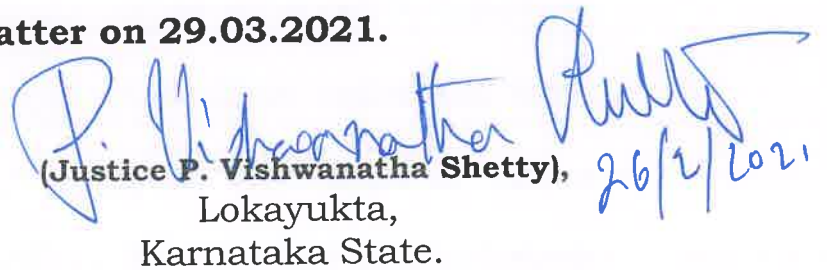 atter on 29.03.2021.
P. Vishwanatha Shetty
(Justice P. Vishwanatha Shetty), 26/2/2021
Lokayukta,
Karnataka State.